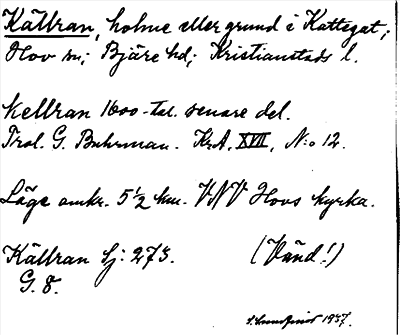 Källran, holme eller grund i Kattegat;
Hov sn; Bjäre hd; Kristianstads l.
Kellran 1600-tal. senare del.
Trol. G. Buhrman. Kr.A. XVII, N:o 12.
Läge omkr. 5½ km. VNV Hovs kyrka.
Källran Sj: 273. (Vänd!)
G. 8.
S. 1937.